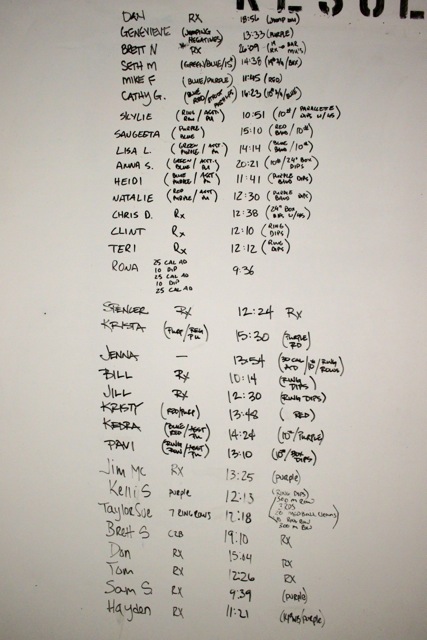 RESUL
DAN RX 18:56 (JUMP ON)
GENEVIEVE (JUMPING NEGATIVES) 13:33 (PURPLE)
BRETT N *RX 26:09
SETH M (GREEN/BLUE/15#) 14:38
MIKE F (BLUE/PURPLE) 11:45 (RED)
CATHY G. 16:23
SKYLIE (RING ROW / ASST. PU) 10:51 (10# / PARALLETTE DIPS
SANGEETA (PURPLE BLUE) 15:10 (RED BAND / 10#)
LISA L. (GREEN PURPLE / ASST PU) 14:14 (BLUE BAND / 10#)
ANNA S. (GREEN BLUE / ASST. PU) 20:21 (10# / 24" BOX DIPS)
HEIDI (BLUE PURPLE / ASST PU) 11:41 (PURPLE BAND DIPS)
NATALIE (RED PURPLE / ASST PU) 12:30 (PURPLE BAND DIPS)
CHRIS D. Rx 12:38 (24" BOX DIPS
CLINT Rx 12:10 (RING DIPS)
TERI Rx 12:12 (RING DIPS)
RONA 25 CAL AD 9:36
10 DIP
25 CAL AD
10 DIP
25 CAL AD
SPENCER Rx 12:24 Rx
KRISTA 15:30 (PURPLE) RD
JENNA — 13:54 (30 CAL AD / 10# / RING ROWS)
BILL Rx 10:14 (RING DIPS)
JILL Rx 12:30 (RING DIPS)
KRISTY (RED/PURP) 13:48 (RED)
KEIRA (BLUE/RED / ASST PU) 14:24 (10# / PURPLE)
PAVI 13:10 (10# / BOX DIPS)
Jim Mc RX 13:25 (purple)
Kelli S purple 12:13 (RING DIPS)
Taylor Sue 7 RING ROWS 12:18
Brett S CRB 19:10 RX
Don RX 15:04 RX
Tom RX 12:26 RX
Sam S RX 9:39 (purple)
Hayden RX 11:21